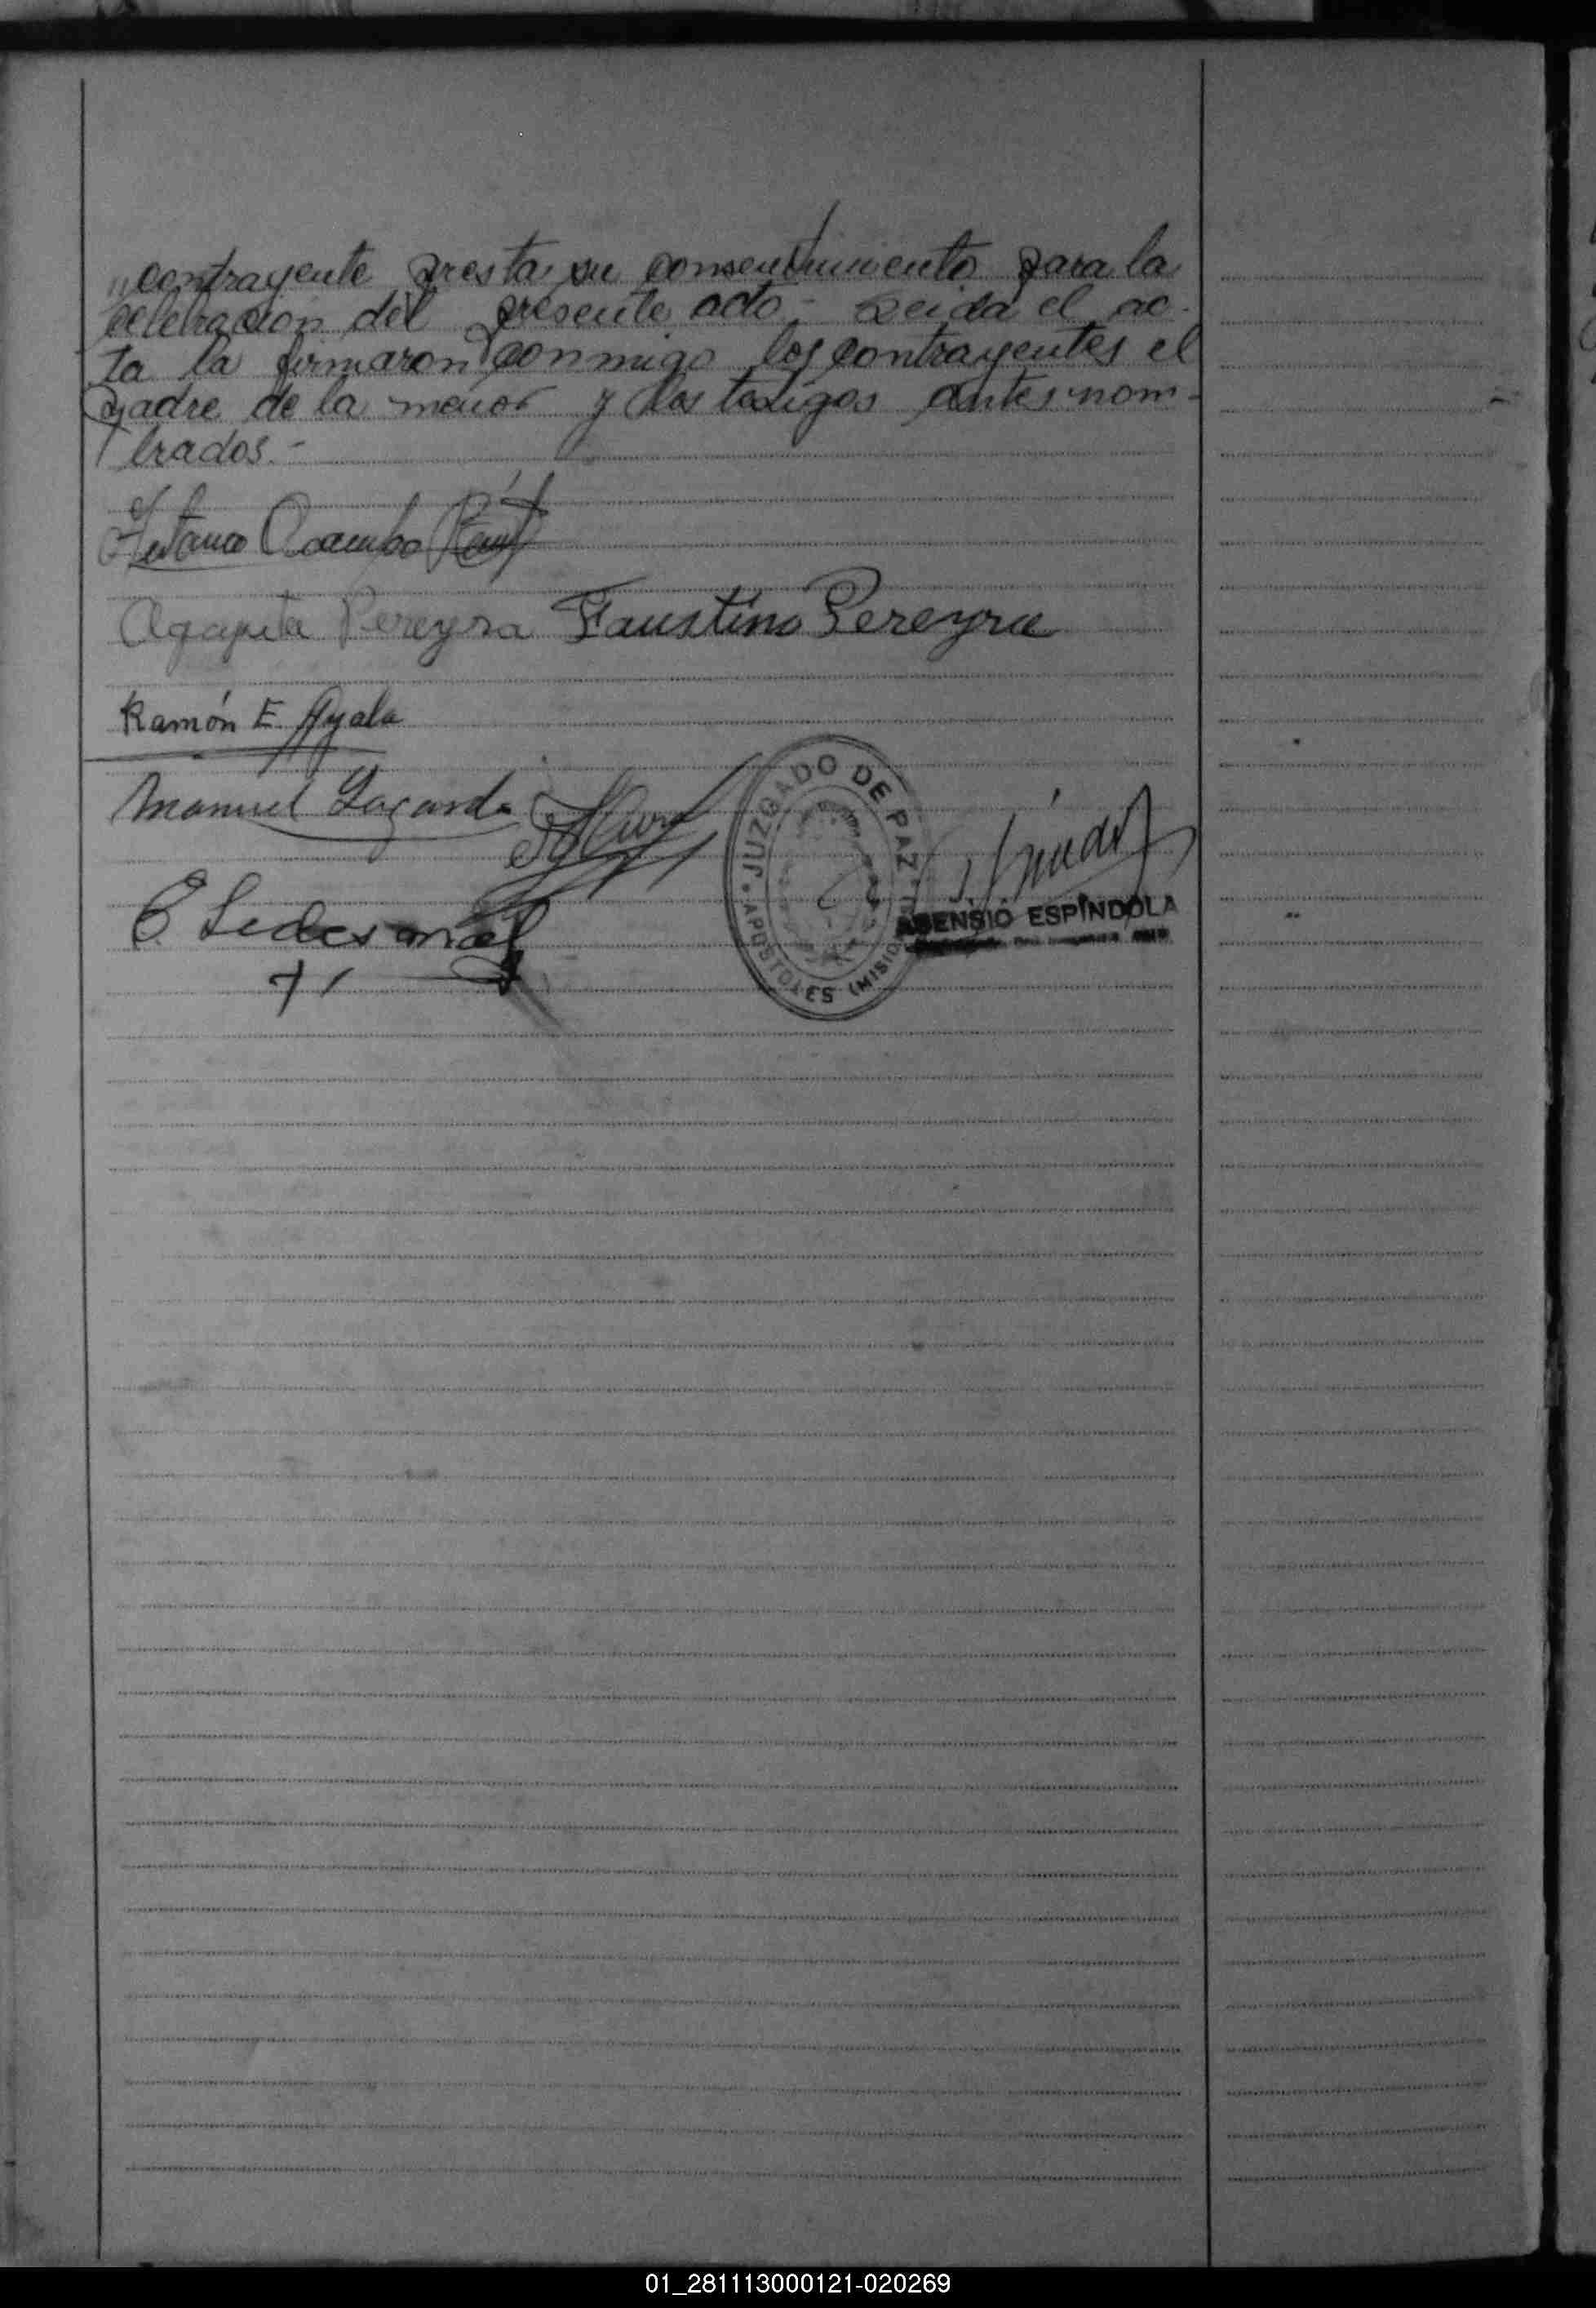 contrayente presta su consentimiento para la
celebracion del presente acto.- Leida el ac-
ta la firmaron conmigo los contrayentes el
padre de la menor y los testigos antes nom-
brados.-
Ocampo
Agapita Pereyra Faustino Pereyra
Ramón E. Ayala
Manuel
E Ledesma
JUZGADO DE PAZ
APOSTOLES (MISIO
ASENSIO ESPINDOLA
01_281113000121-020269